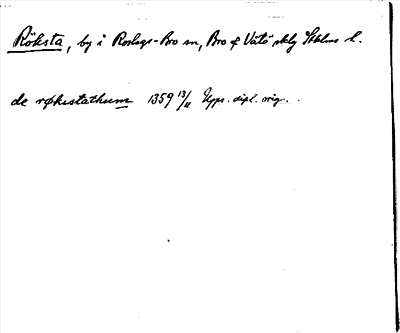 Röksta, by i Roslags-Bro sn, Bro o Vätö skg Sthlms l.
de røkistathum 1359 13/11 Upps. dipl. orig.